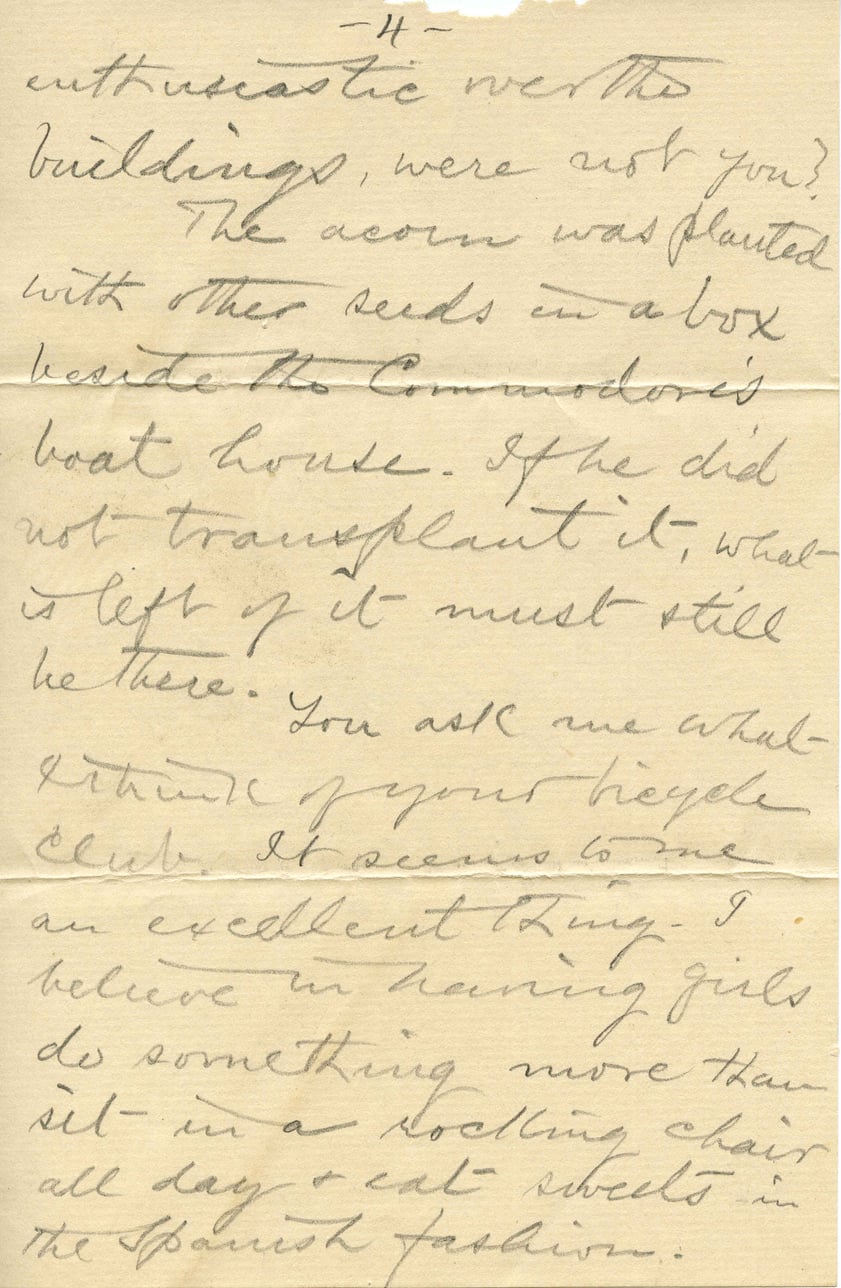 -4-
enthusiastic over the
buildings, were not you?
The acorn was planted
with other seeds in a box
beside the Commodore's
boat house. If he did
not transplant it, what
is left of it must still
be there.
You ask me what
I think of your bicycle
Club. It seems to me
an excellent thing. I
believe in having girls
do something more than
sit in a rocking chair
all day + eat sweets in
the Spanish fashion.